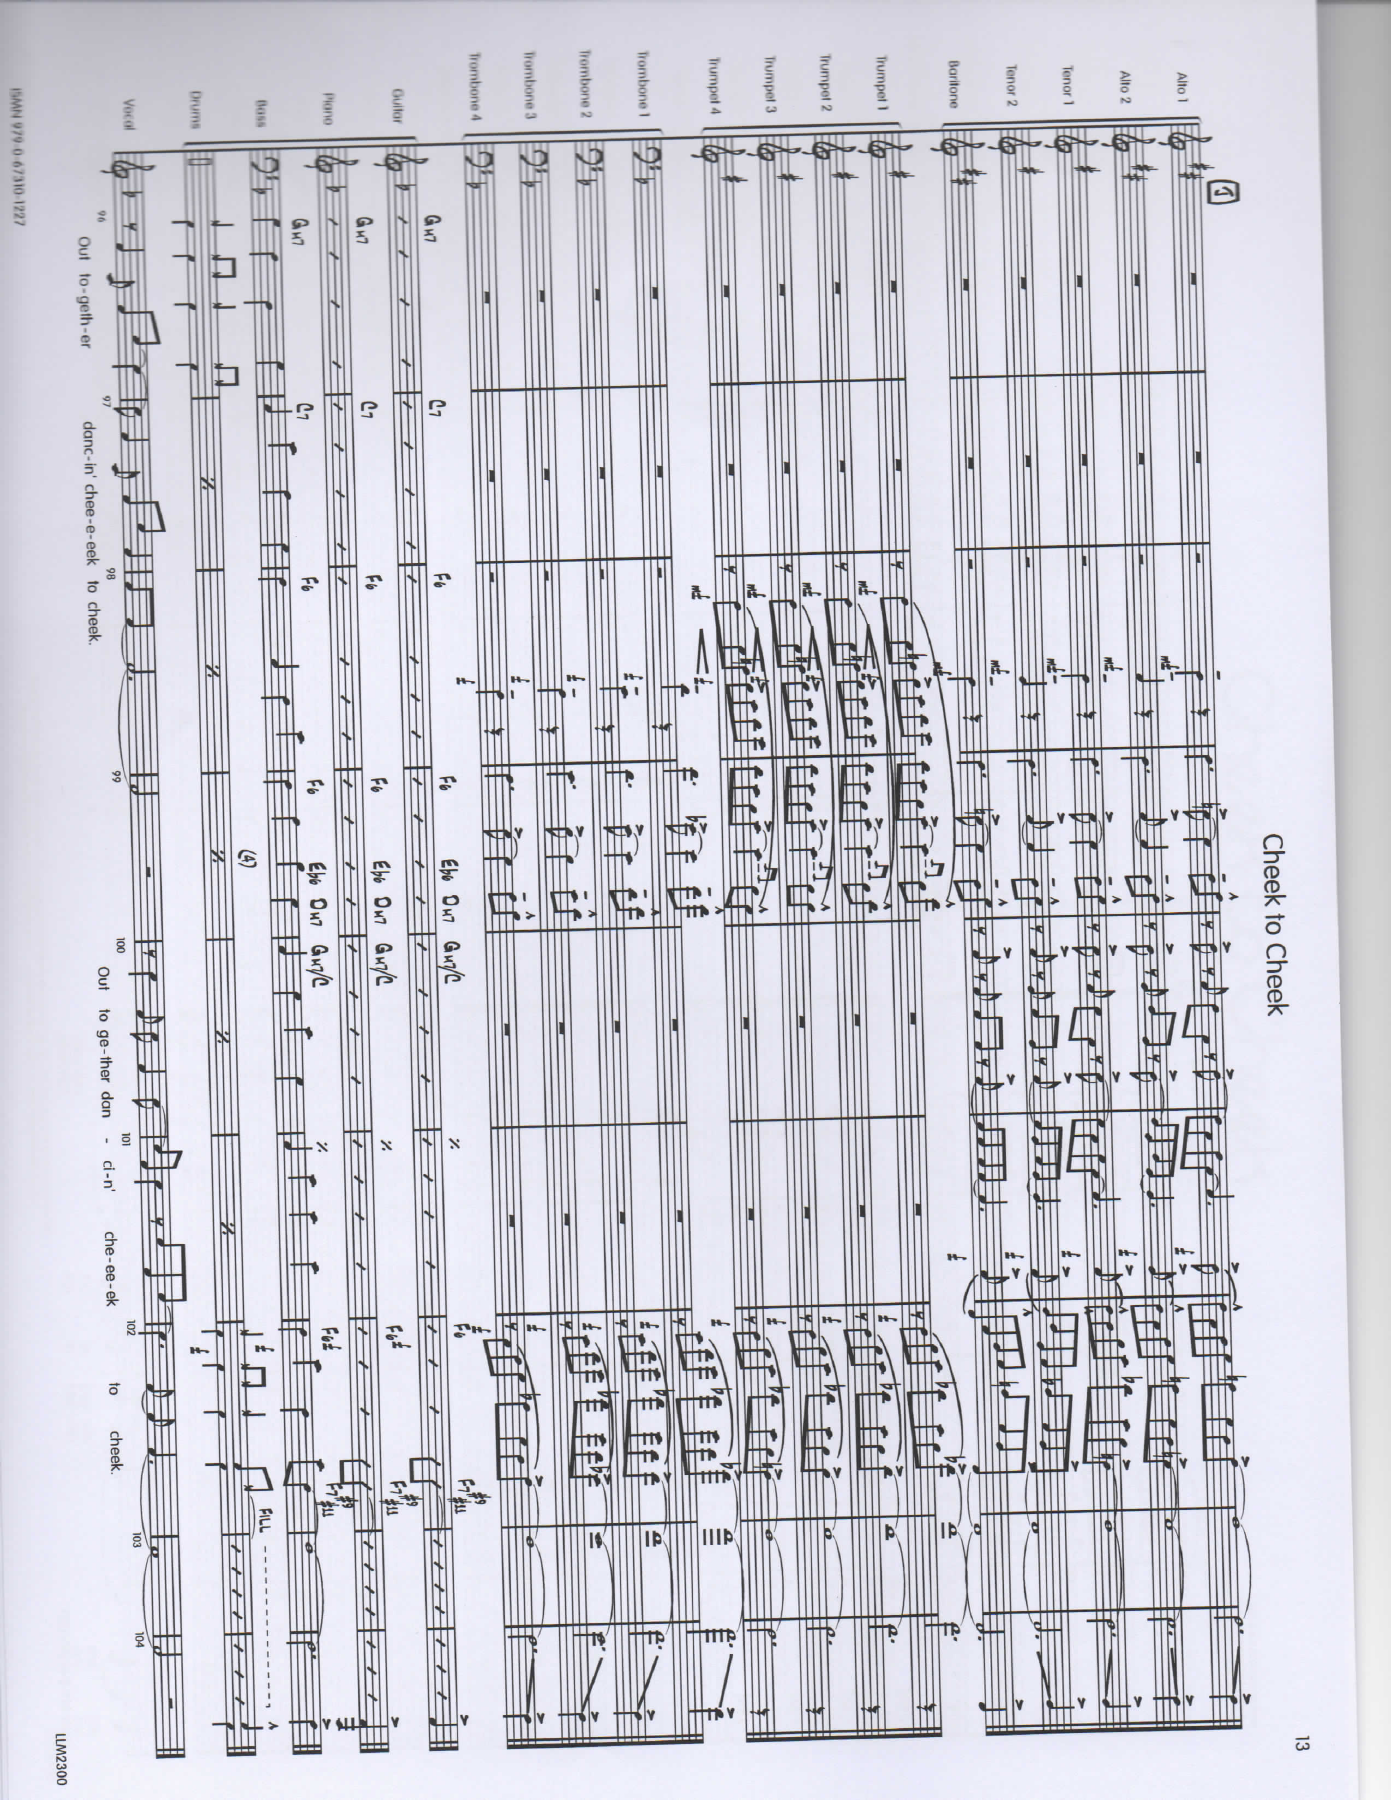 Cheek to Cheek
13
J
Alto 1
Alto 2
Tenor 1
Tenor 2
Baritone
Trumpet 1
Trumpet 2
Trumpet 3
Trumpet 4
Trombone 1
Trombone 2
Trombone 3
Trombone 4
Guitar
GM7 C7 F6 F6 Eb6 DM7 GM7/C F6 F7#9#11
Piano
GM7 C7 F6 F6 Eb6 DM7 GM7/C F6 F7#9#11
Bass
GM7 C7 F6 F6 Eb6 DM7 GM7/C F6 F7#9#11
Drums
(4)
FILL
Vocal
96 97 98 99 100 101 102 103 104
Out to-geth-er danc-in' chee-e-eek to cheek. Out to ge-ther dan - ci-n' che-ee-ek to cheek.
ISMN 979-0-67310-1227
LLM2300